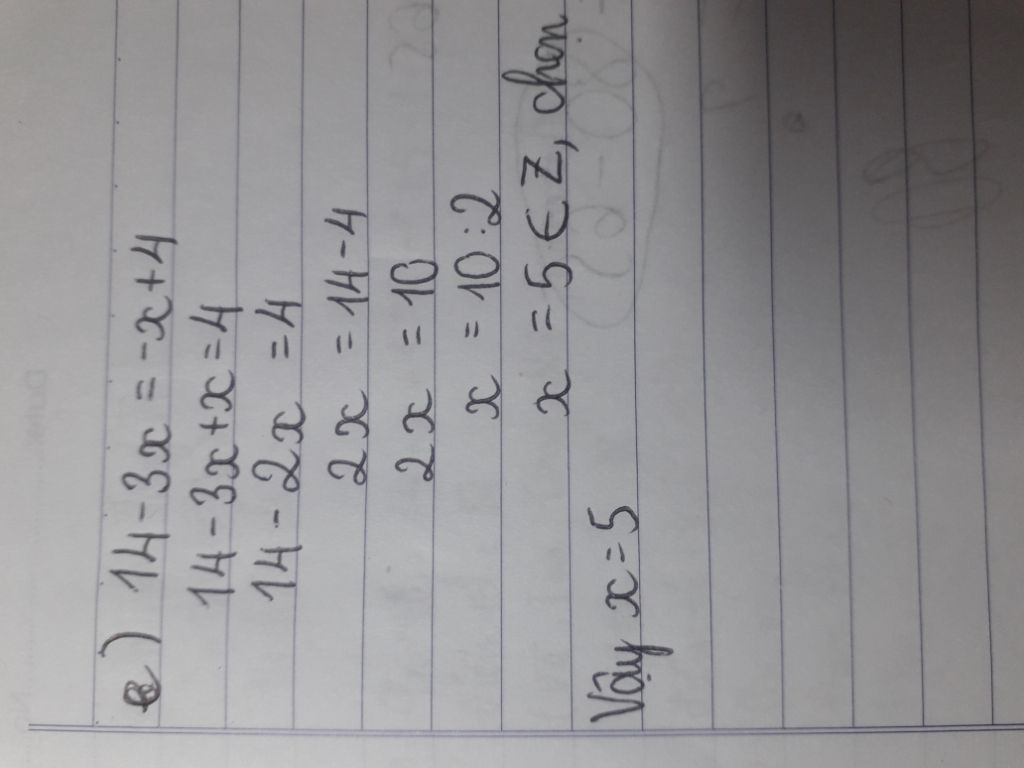 e) 14 - 3x = -x + 4
14 - 3x + x = 4
14 - 2x = 4
2x = 14 - 4
2x = 10
x = 10 : 2
x = 5 ∈ Z, chọn
Vậy x = 5